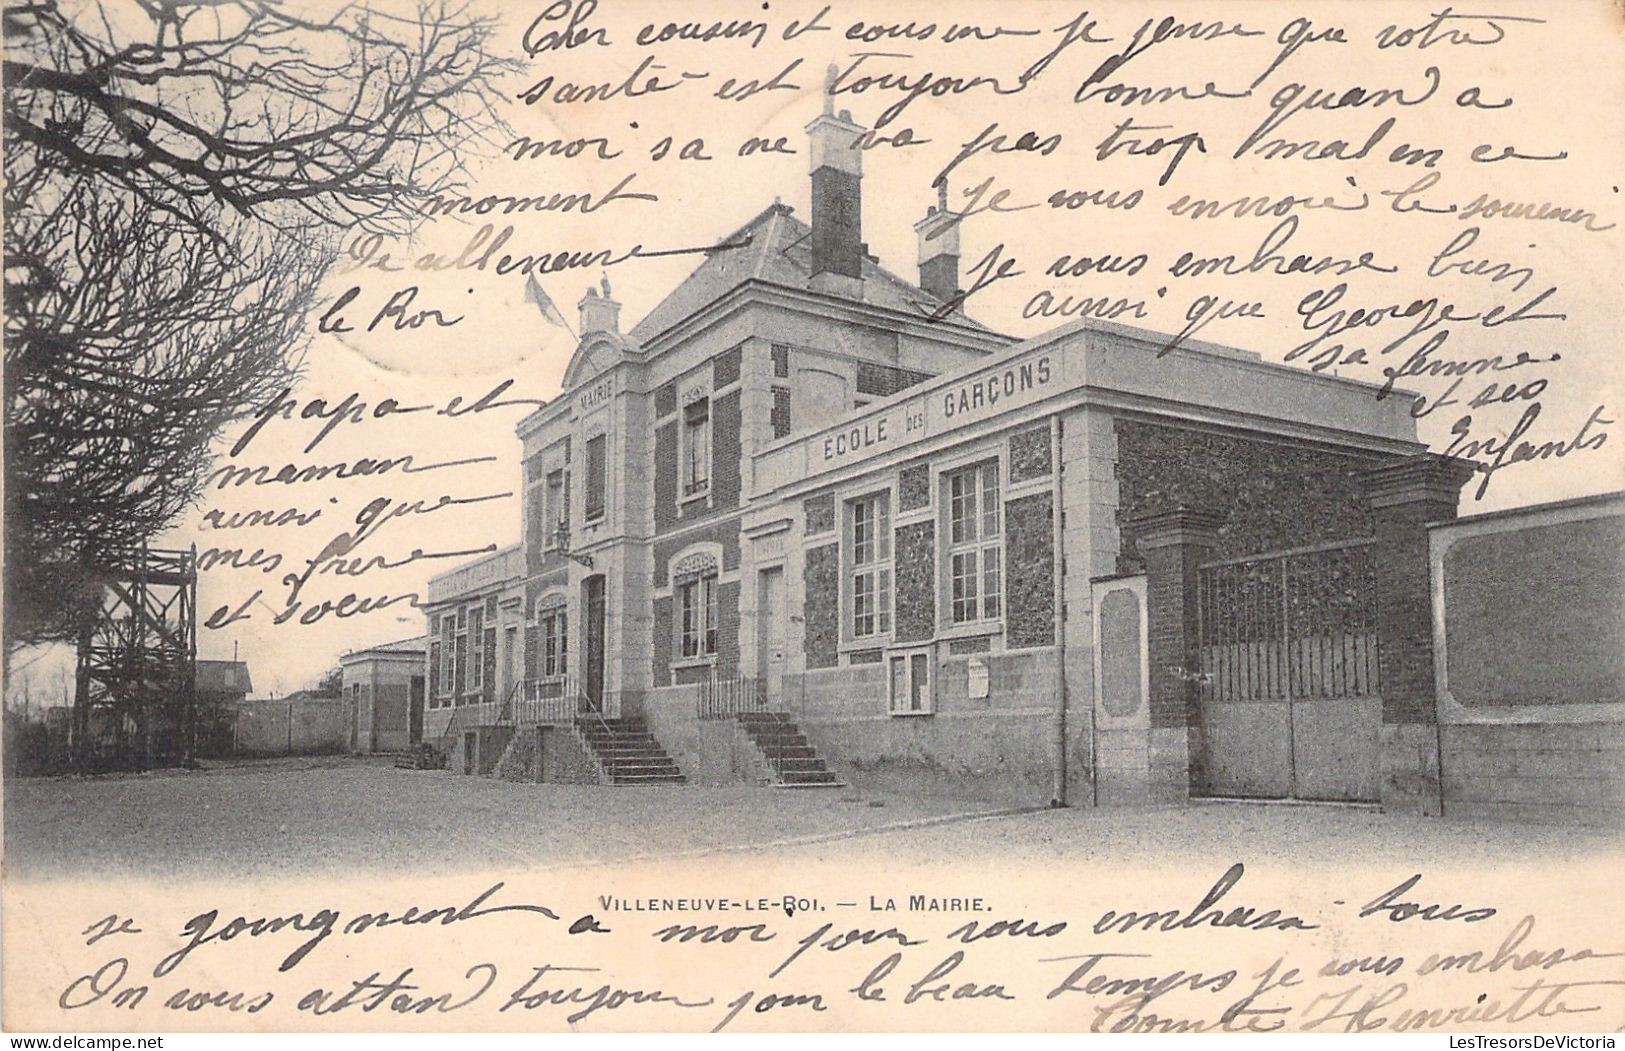 Cher cousin et cousine je pense que votre
santé est toujour bonne quand a
moi sa ne va pas trop mal en ce
moment je vous envoie le souvenir
De villeneuve
le Roi
Je vous embrasse bien
ainsi que George et
sa femme
et ses
Enfants
papa et
maman
ainsi que
mes frere
et soeur
MAIRIE
ÉCOLE DES GARÇONS
VILLENEUVE-LE-ROI. — LA MAIRIE.
se goingnent a moi pour vous embrasa tous
On vous attand toujour pour le beau temps je vous embrasa
Comte Henriette
LesTresorsDeVictoria